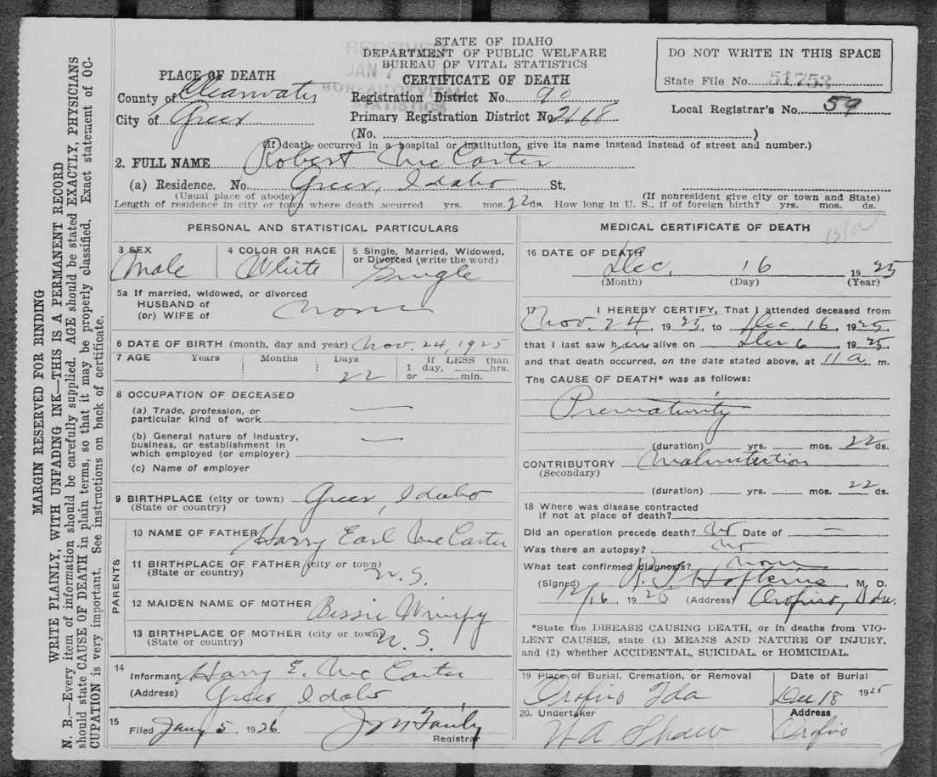 STATE OF IDAHO
DEPARTMENT OF PUBLIC WELFARE
BUREAU OF VITAL STATISTICS
CERTIFICATE OF DEATH
DO NOT WRITE IN THIS SPACE
State File No. 51753
Local Registrar's No. 59
PLACE OF DEATH
County of Clearwater
City of Greer
Registration District No. 90
Primary Registration District No. 2168
(No. )
(If death occurred in a hospital or institution, give its name instead instead of street and number.)
2. FULL NAME Robert McCarter
(a) Residence. No. Greer, Idaho St.
(Usual place of abode) (If nonresident give city or town and State)
Length of residence in city or town where death occurred yrs. mos. 22 ds. How long in U. S., if of foreign birth? yrs. mos. ds.
PERSONAL AND STATISTICAL PARTICULARS
3 SEX
Male
4 COLOR OR RACE
White
5 Single, Married, Widowed,
or Divorced (write the word)
Single
5a If married, widowed, or divorced
HUSBAND of
(or) WIFE of
6 DATE OF BIRTH (month, day and year) Nov. 24, 1925
7 AGE Years Months Days If LESS than
22 1 day, hrs.
or min.
8 OCCUPATION OF DECEASED
(a) Trade, profession, or
particular kind of work —
(b) General nature of industry,
business, or establishment in
which employed (or employer) —
(c) Name of employer
9 BIRTHPLACE (city or town) Greer, Idaho
(State or country)
PARENTS
10 NAME OF FATHER Harry Earl McCarter
11 BIRTHPLACE OF FATHER (city or town)
(State or country) U. S.
12 MAIDEN NAME OF MOTHER Bessie
13 BIRTHPLACE OF MOTHER (city or town)
(State or country) U. S.
14
Informant Harry E. McCarter
(Address) Greer Idaho
15
Filed Jany 5 1926
Registrar
MEDICAL CERTIFICATE OF DEATH
16 DATE OF DEATH
Dec. 16 1925
(Month) (Day) (Year)
17 I HEREBY CERTIFY, That I attended deceased from
Nov. 24, 1925, to Dec. 16, 1925,
that I last saw him alive on Dec 6, 1925,
and that death occurred, on the date stated above, at 11 a. m.
The CAUSE OF DEATH* was as follows:
Prematurity
(duration) yrs. mos. 22 ds.
CONTRIBUTORY Malnutrition
(Secondary)
(duration) yrs. mos. 22 ds.
18 Where was disease contracted
if not at place of death?
Did an operation precede death? No Date of —
Was there an autopsy? No
What test confirmed diagnosis? None
(Signed) Hopkins, M. D.
12/16, 1925 (Address) Orofino, Ida.
*State the DISEASE CAUSING DEATH, or in deaths from VIO-
LENT CAUSES, state (1) MEANS AND NATURE OF INJURY,
and (2) whether ACCIDENTAL, SUICIDAL, or HOMICIDAL.
19 Place of Burial, Cremation, or Removal
Orofino Ida
Date of Burial
Dec 18 1925
20. Undertaker
W A Shaw
Address
Orofino
MARGIN RESERVED FOR BINDING
WRITE PLAINLY, WITH UNFADING INK—THIS IS A PERMANENT RECORD
N. B.—Every item of information should be carefully supplied. AGE should be stated EXACTLY, PHYSICIANS
should state CAUSE OF DEATH in plain terms, so that it may be properly classified. Exact statement of OC-
CUPATION is very important. See instructions on back of certificate.